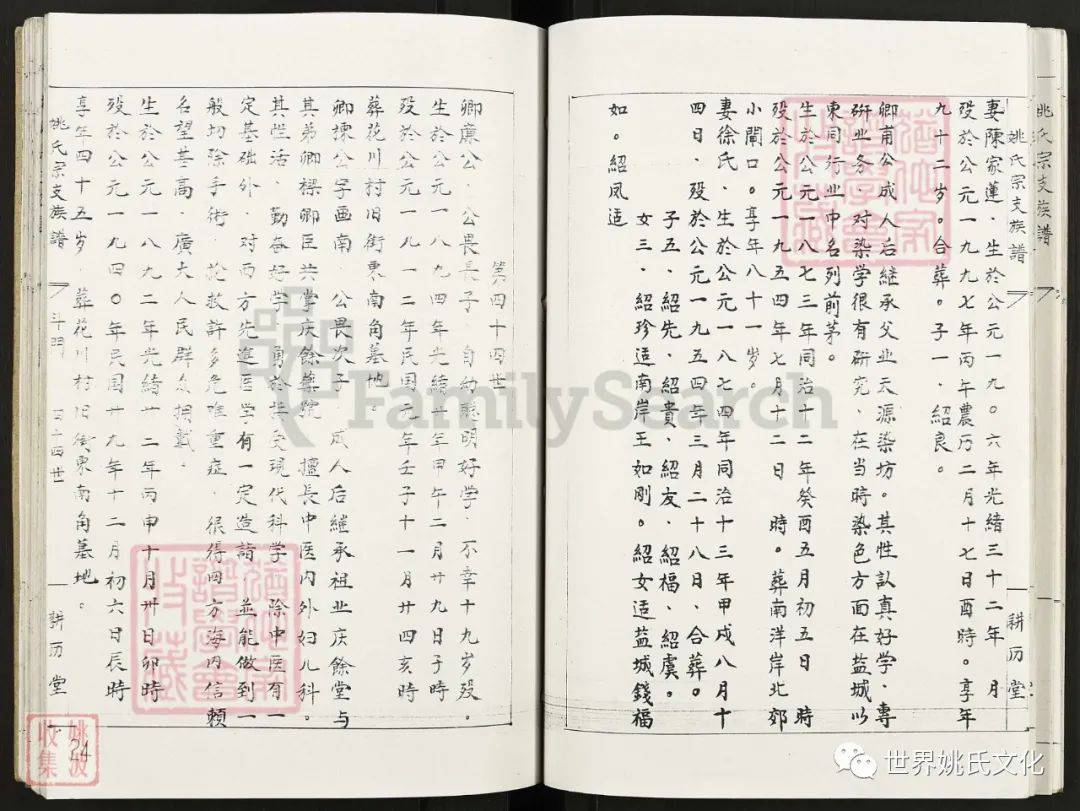 姚氏宗支族譜
姚氏宗支族譜
耕历堂
妻陳家蓮．生於公元一九。六年光緒三十二年　月
殁於公元一九九七年丙年農历二月十七日酉時。享年
九十二岁。合葬。子一．紹良。
卿甫公成人后继承父业天源染坊。其性認真好学．專
研业务．对染学很有研究．在当時染色方面在盐城以
東同行业中名列前茅。
生於公元一八七三年同治十二年癸酉五月初五日　時
殁於公元一九五四年七月十二日　時。葬南洋岸北郊
小閘口。享年八十一岁。
妻徐氏．生於公元一八七四年同治十三年甲戌八月十
四日．殁於公元一九五四年三月二十八日．合葬。
子五．紹先．紹貴．紹友．紹福．紹虞。
女三．紹珍适南岸王如刚。紹女适盐城錢福
如。紹凤适
第四十四世
卿廉公．公畏長子．自幼聪明好学．不幸十九岁殁。
生於公元一八九四年光緒廿年甲午二月廿九日子時
殁於公元一九一二年民国元年壬子十一月廿四亥時
葬花川村旧街東南角墓地。
卿揀公字画南．公畏次子．成人后继承祖业庆餘堂与
其弟卿樑卿臣共掌庆餘藥院．擅長中医内外妇儿科。
其性活．勤奋好学．勇於接受現代科学．除中医有一
定基础外．对西方先進医学有一定造詣．並能做到一
般切除手術．抢救許多危难重症．很得四方海内信賴
名望甚高．廣大人民群众擁戴．
生於公元一八九二年光緒廿二年丙申十月卅日卯時
殁於公元一九四〇年民国廿九年十二月初六日辰時
享年四十五岁．葬花川村旧街東南角墓地。
姚氏宗支族譜
斗門
三十四世
耕历堂
24
姚波
收集
FamilySearch
世界姚氏文化